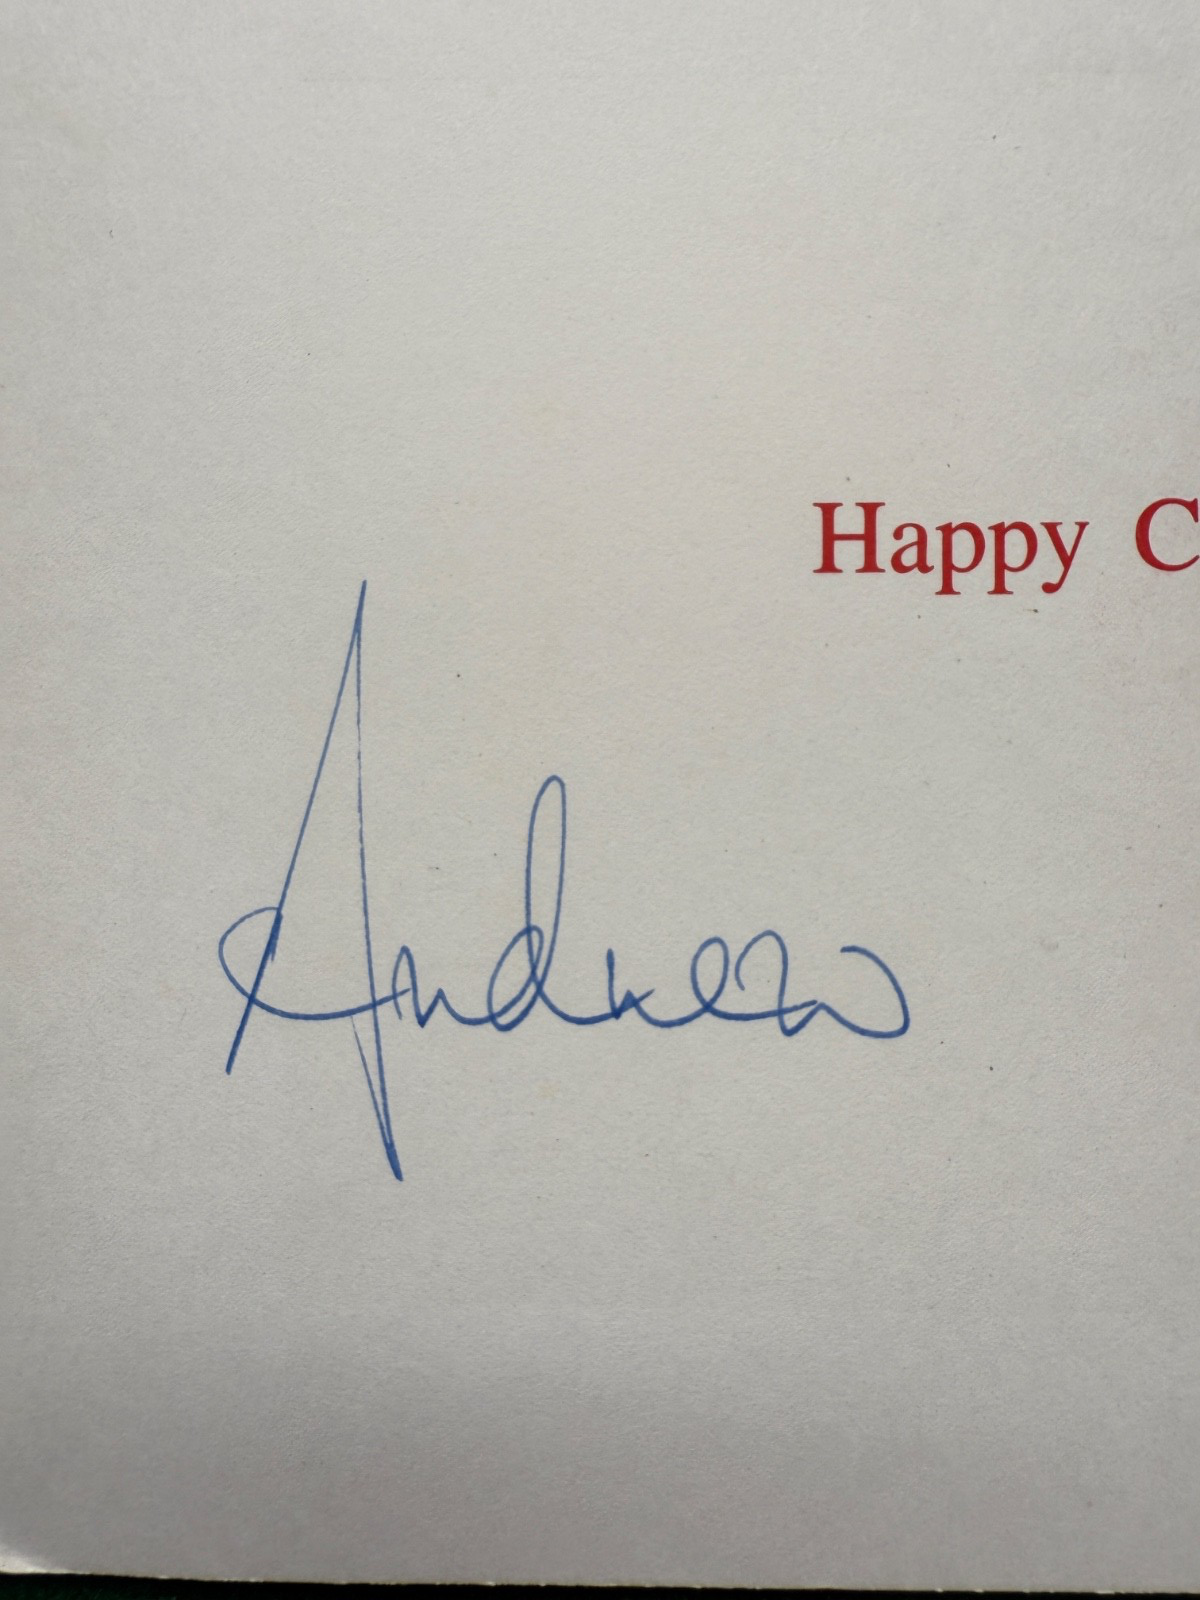 Happy C
Andrew